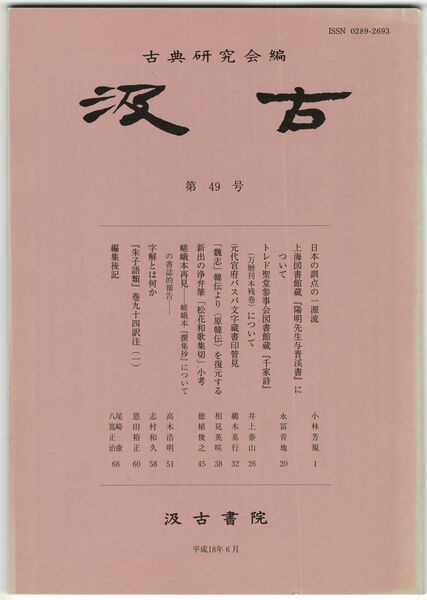 ISSN 0289-2693
古典研究会編
汲古
第49号
日本の訓点の一源流 小林芳規 1
上海図書館蔵『陽明先生与晋渓書』に
ついて 永冨青地 20
トレド聖堂参事会図書館蔵『千家詩』
（万暦刊本残巻）について 井上泰山 26
元代官府パスパ文字蔵書印管見 鶴木基行 32
「魏志」韓伝より〈原韓伝〉を復元する 相見英咲 38
新出の浄弁筆「松花和歌集切」小考 徳植俊之 45
嵯峨本再見――嵯峨本『撰集抄』について
の書誌的報告―― 高木浩明 51
字解とは何か 志村和久 58
『朱子語類』巻九十四訳注（一） 恩田裕正 60
編集後記 尾崎康
八嶌正治 68
汲古書院
平成18年6月